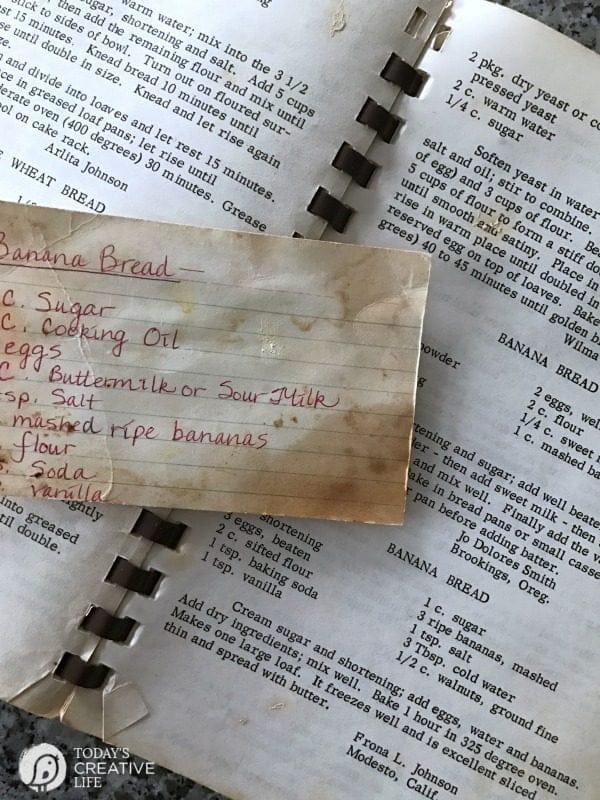 warm water; mix into the 3 1/2
sugar, shortening and salt. Add 5 cups
stick to sides of bowl. Turn out on floured sur-
15 minutes. Knead bread 10 minutes until
then add the remaining flour and mix until
until double in size. Knead and let rise again
and divide into loaves and let rest 15 minutes.
in greased loaf pans; let rise until
oven (400 degrees) 30 minutes. Grease
on cake rack.
Arlita Johnson
WHEAT BREAD
Banana Bread —
C. Sugar
C. Cooking Oil
eggs
C. Buttermilk or Sour Milk
sp. Salt
mashed ripe bananas
flour
Soda
Vanilla
into greased
until double.
2 pkg. dry yeast or
pressed yeast
2 c. warm water
1/4 c. sugar
Soften yeast in water
salt and oil; stir to combine.
of egg) and 3 cups of flour.
5 cups of flour to form a stiff
until smooth and satiny. Place in
rise in warm place until doubled in
reserved egg on top of loaves. Bake
grees) 40 to 45 minutes until golden
Wilma
BANANA BREAD
powder
2 eggs, well
2 c. flour
1/4 c. sweet
1 c. mashed
and sugar; add well beaten
- then add sweet milk - then
and mix well. Finally add the
in bread pans or small
pan before adding batter.
Jo Dolores Smith
Brookings, Oreg.
BANANA BREAD
shortening
3 eggs, beaten
2 c. sifted flour
1 tsp. baking soda
1 tsp. vanilla
1 c. sugar
3 ripe bananas, mashed
1 tsp. salt
3 Tbsp. cold water
1/2 c. walnuts, ground fine
Cream sugar and shortening; add eggs, water and bananas.
Add dry ingredients; mix well. Bake 1 hour in 325 degree oven.
Makes one large loaf. It freezes well and is excellent sliced
thin and spread with butter.
Frona L. Johnson
Modesto, Calif
TODAY'S
CREATIVE
LIFE